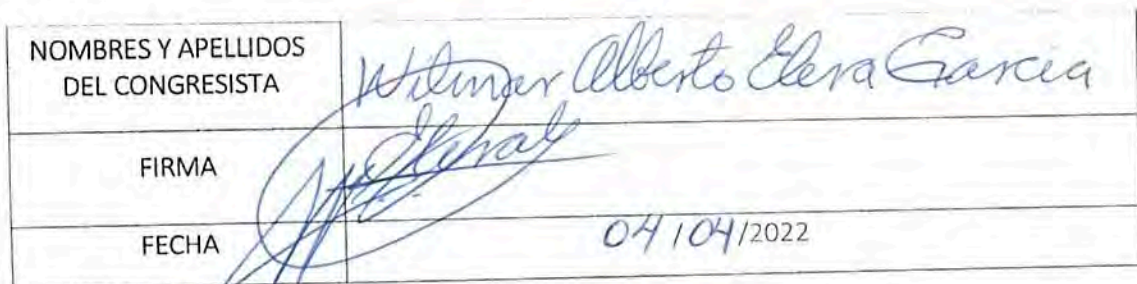 NOMBRES Y APELLIDOS
DEL CONGRESISTA
Wilmar Alberto Elera Garcia
FIRMA
FECHA
04/04/2022